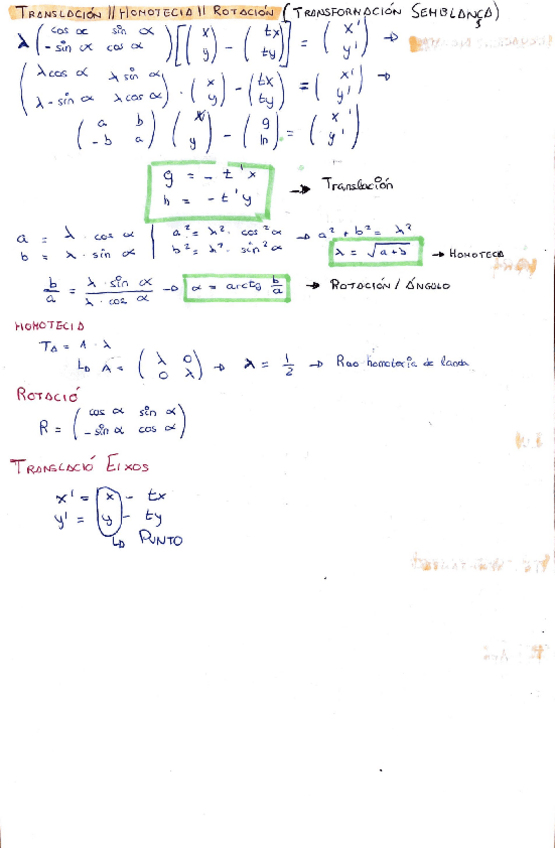 TRANSLACIÓN // HOMOTECIA // ROTACIÓN (TRANSFORMACIÓN SEMBLANÇA)
λ ( cos α sin α / -sin α cos α ) [ ( x / y ) - ( tx / ty ) ] = ( x' / y' ) →
( λ cos α λ sin α / λ - sin α λ cos α ) · ( x / y ) - ( tx / ty ) = ( x' / y' ) →
( a b / -b a ) ( x / y ) - ( g / h ) = ( x' / y' )
g = - t'x
h = - t'y → Translación
a = λ · cos α | a² = λ² · cos² α → a² + b² = λ²
b = λ · sin α | b² = λ² · sin² α λ = √a+b → HOMOTECIA
b/a = λ · sin α / λ · cos α → α = arctg b/a → ROTACIÓN / ÁNGULO
HOMOTECIA
T = A · λ
A = ( λ 0 / 0 λ ) → λ = 1/2 → Rao homotecia de
ROTACIÓ
R = ( cos α sin α / -sin α cos α )
TRANSLACIÓ EIXOS
x' = x - tx
y' = y - ty
PUNTO